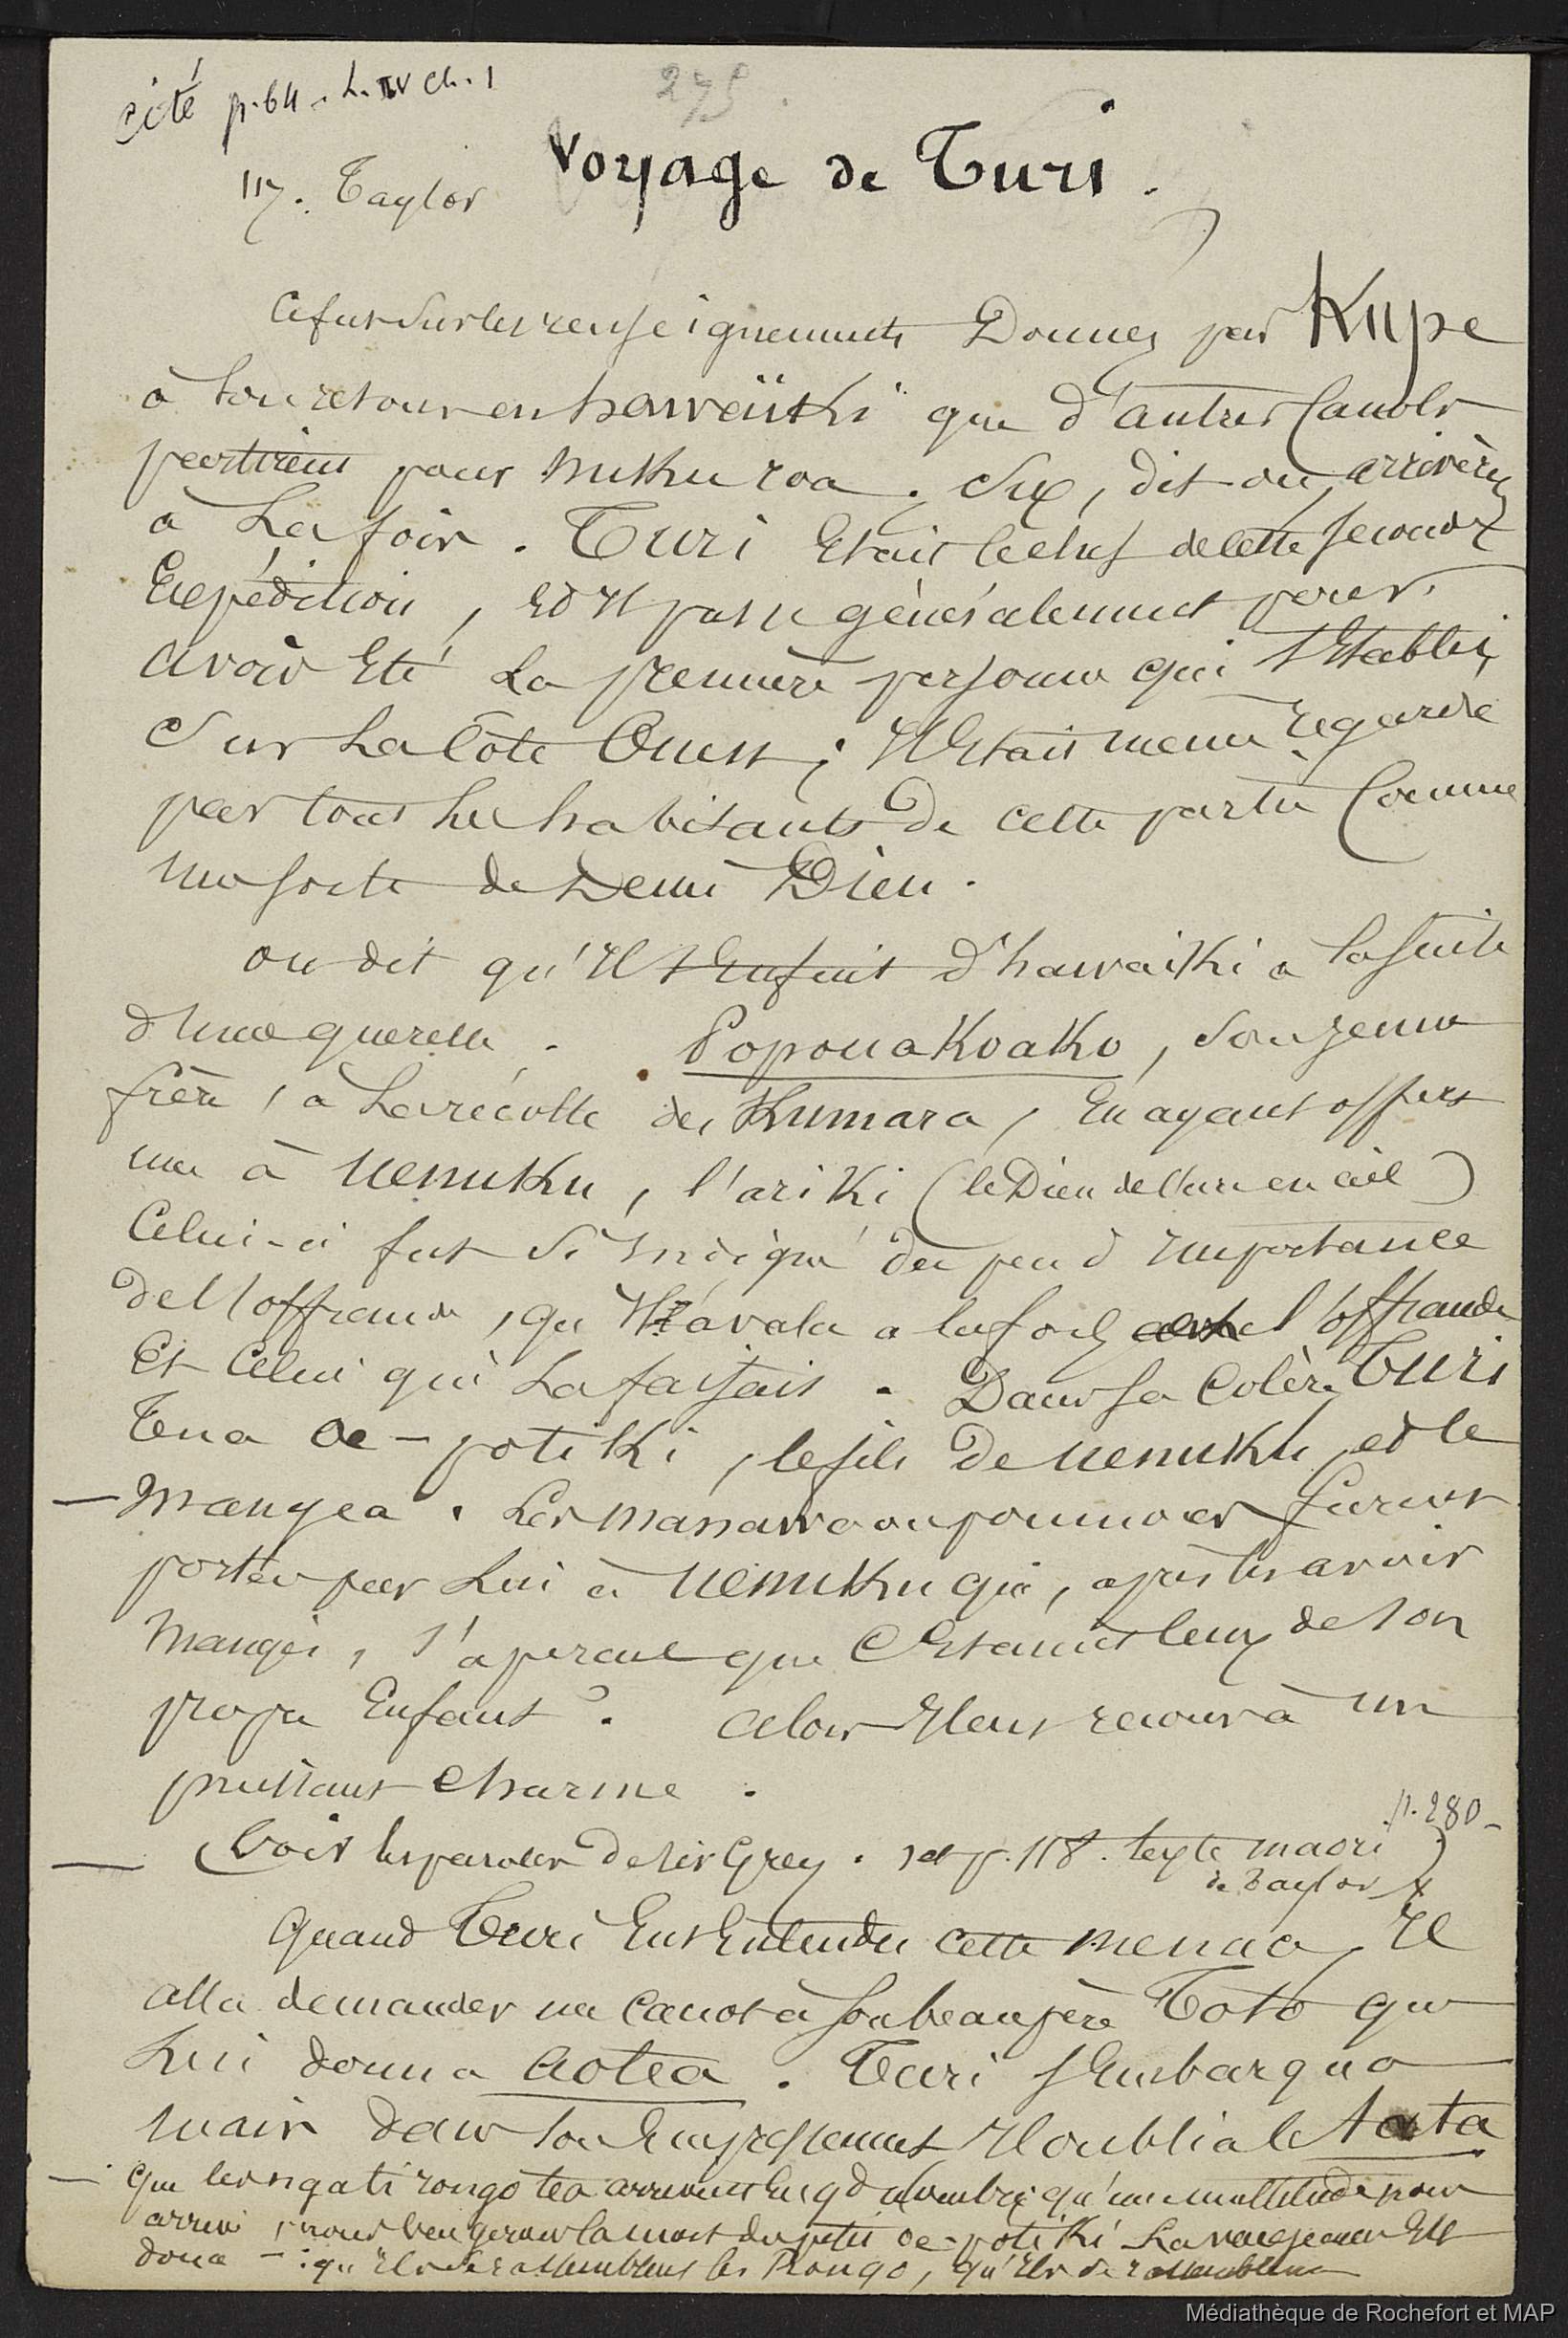 cité p. 64. L. IV ch. 1
275.
117. Taylor
Voyage de Turi.
Ce fut sur les renseignements Donnés par Kupe
à son retour en hawaïki que d'autres Canots
partirent pour nukuroa. Six, dit on, arrivèrent
à La fois. Turi Etait le chef de cette seconde
Expédition, Et Il passe généralement pour
avoir Eté La première personne qui s'Etablit
Sur La Côte Ouest; Il Etait meme regardé
par tous les habitants de cette partie Comme
une sorte de Demi Dieu.
on dit qu'Il s'Enfuit d'hawaïki a la suite
d'Une querelle. Popouakoako, Son jeune
frère, à La récolte des Kumara, En ayant offert
une à Uenuku, l'ariki (le Dieu de l'arc en ciel)
Celui-ci fut Si Indigné du peu d'Importance
De l'offrande, qu'Il avala a la fois et l'offrande
Et Celui qui La faisait. Dans sa Colère, Turi
Tua Oe-potiki, le fils De Uenuku, et le
— Mangea. Les manawa ou poumons furent
portés par Lui à Uenuku qui, après les avoir
Mangés, s'aperçut que C'Etaient ceux de son
propre Enfant. alors Il eut recours à un
puissant Charme.
p. 280 -
— (Voir les paroles De Sir Grey. et p. 118. texte maori)
de Taylor x
Quand Turi Eut Entendu cette menace, Il
alla demander un Canot à son beau père Toto qui
Lui donna Aotea. Turi s'Embarqua
mais dans son Empressement Il oublia le Tata
— Que les ngati rongo tea arrivent En gd nombre qu'une multitude pour
arrive, nous vengerons la mort du petit oe-potiki La vengeance Est
douce - : qu'Ils se rassemblent les Rongo, qu'Ils se rassemblent
Médiathèque de Rochefort et MAP